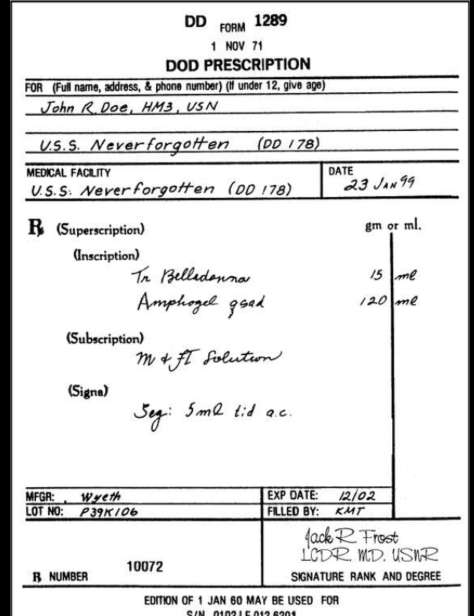 DD FORM 1289
1 NOV 71
DOD PRESCRIPTION
FOR (Full name, address, & phone number) (If under 12, give age)
John R. Doe, HM3, USN
U.S.S. Neverforgotten (DD 178)
MEDICAL FACILITY
U.S.S. Neverforgotten (DD 178)
DATE
23 JAN 99
℞ (Superscription)
gm or ml.
(Inscription)
Tr Belladonna 15 ml
Amphogel qsad 120 ml
(Subscription)
M & ft Solution
(Signa)
Sig: 5ml tid a.c.
MFGR: Wyeth
EXP DATE: 12/02
LOT NO: P39K106
FILLED BY: KMT
Jack R. Frost
LCDR, MD, USNR
℞ NUMBER 10072
SIGNATURE RANK AND DEGREE
EDITION OF 1 JAN 60 MAY BE USED FOR
S/N 0102-LF-012-6201